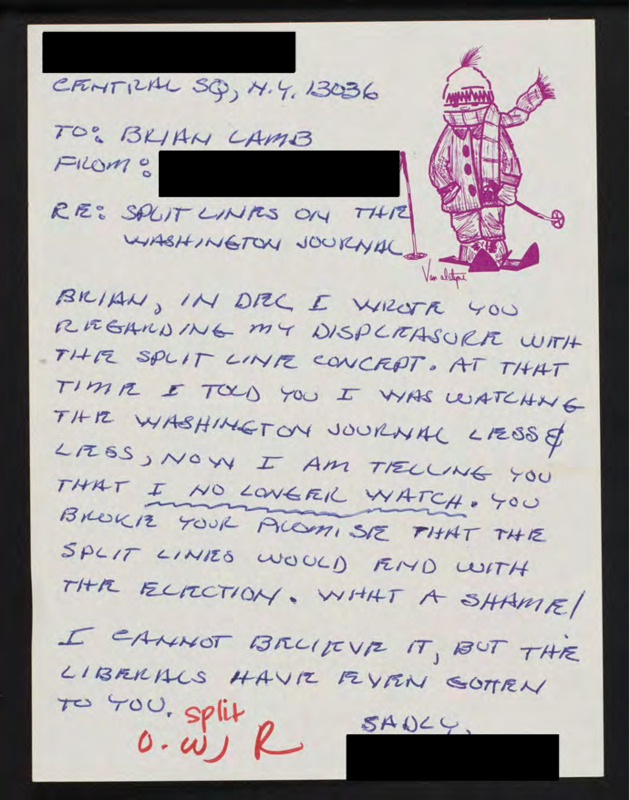 CENTRAL SQ, N.Y. 13036
TO: BRIAN LAMB
FROM:
RE: SPLIT LINES ON THE
WASHINGTON JOURNAL
Van alstyne
BRIAN, IN DEC I WROTE YOU
REGARDING MY DISPLEASURE WITH
THE SPLIT LINE CONCEPT. AT THAT
TIME I TOLD YOU I WAS WATCHNG
THE WASHINGTON JOURNAL LESS &
LESS, NOW I AM TELLING YOU
THAT I NO LONGER WATCH. YOU
BROKE YOUR PROMISE THAT THE
SPLIT LINES WOULD END WITH
THE ELECTION. WHAT A SHAME!
I CANNOT BELIEVE IT, BUT THE
LIBERALS HAVE EVEN GOTTEN
TO YOU.
split
O. WJ R
SADLY,